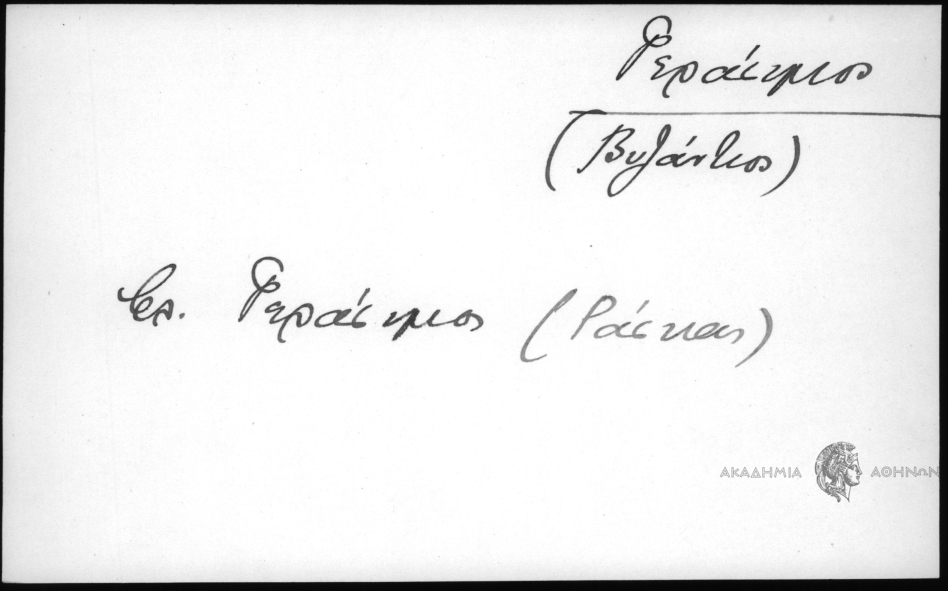 Γεράσιμος
(Βυζάντιος)
βλ. Γεράσιμος (Ράσκας)
ΑΚΑΔΗΜΙΑ ΑΘΗΝΩΝ